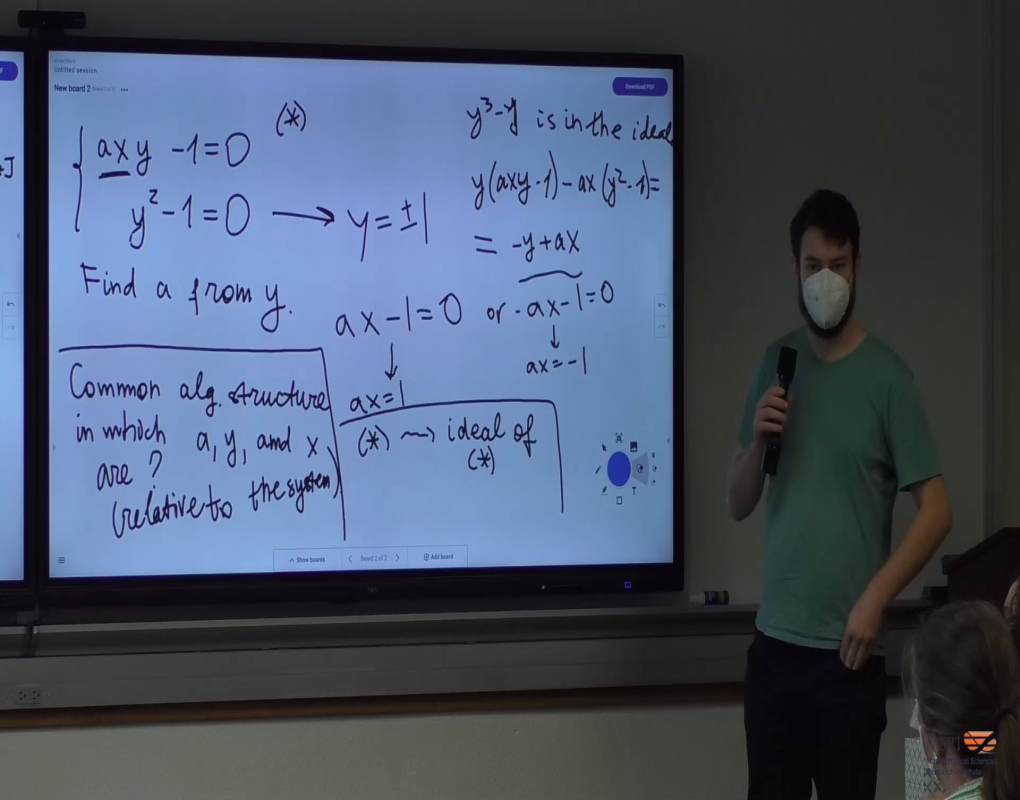 Untitled session
New board 2
Download PDF
axy - 1 = 0 (*)
y² - 1 = 0 → y = ±1
Find a from y.
ax - 1 = 0 or - ax - 1 = 0
↓ ↓
ax = 1 ax = -1
y³ - y is in the ideal
y(axy - 1) - ax(y² - 1) =
= -y + ax
Common alg. structure
in which a, y, and x
are?
(relative to the system)
(*) ⇝ ideal of
(*)
Show boards
Board 2 of 2
Add board